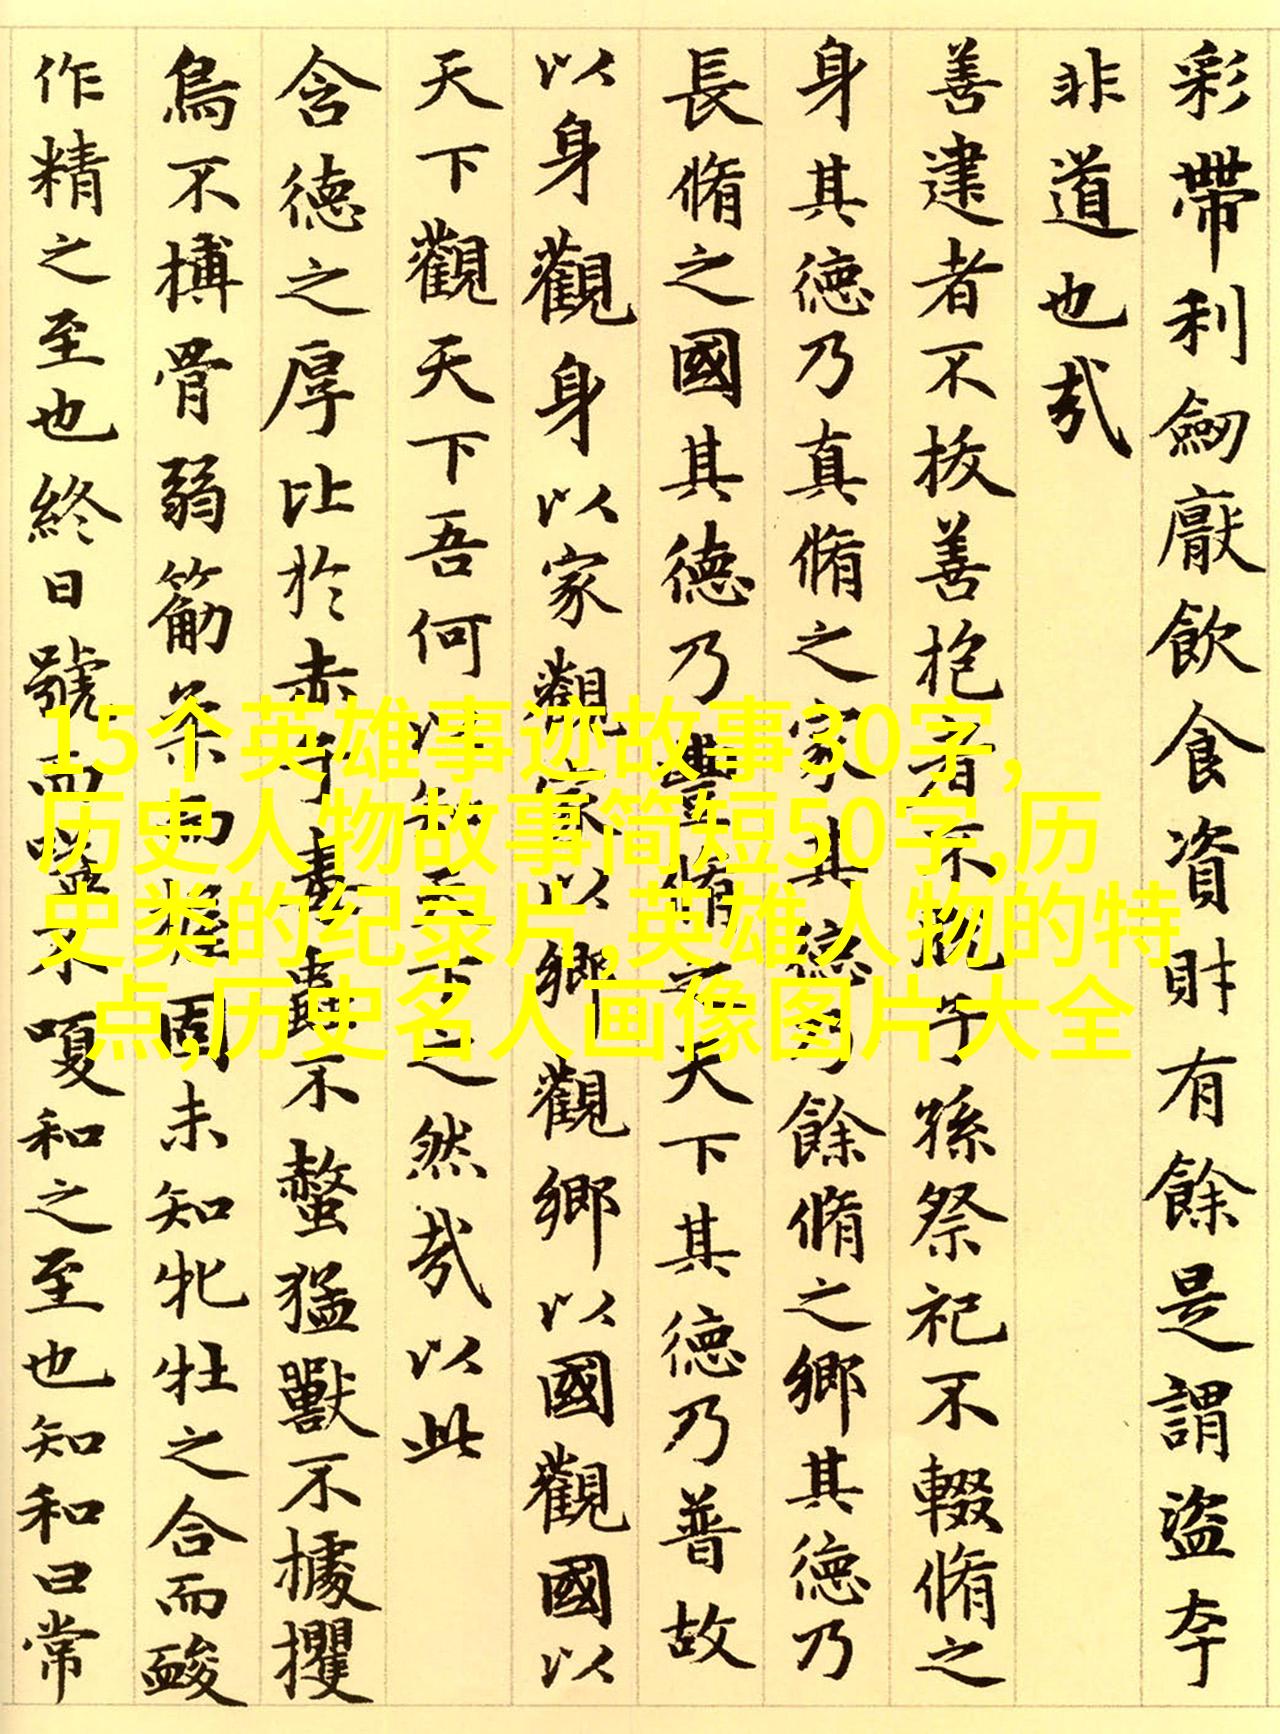 彩帶利劔厭飲食資財有餘是謂盜夸
非道也哉
善建者不拔善抱者不脫子孫祭祀不輟脩之
身其德乃真脩之家其德乃餘脩之鄉其德乃
長脩之國其德乃豐脩之天下其德乃普故
以身觀身以家觀家以鄉觀鄉以國觀國以
天下觀天下吾何以知天下之然哉以此
含德之厚比於赤子毒蟲不螫猛獸不據攫
鳥不搏骨弱筋柔而握固未知牝牡之合而
作精之至也終日號而嗌不嗄和之至也知和曰常
15个英雄事迹故事30字,
历史人物故事简短50字,历
史类的纪录片,英雄人物的特
点,历史名人画像图片大全